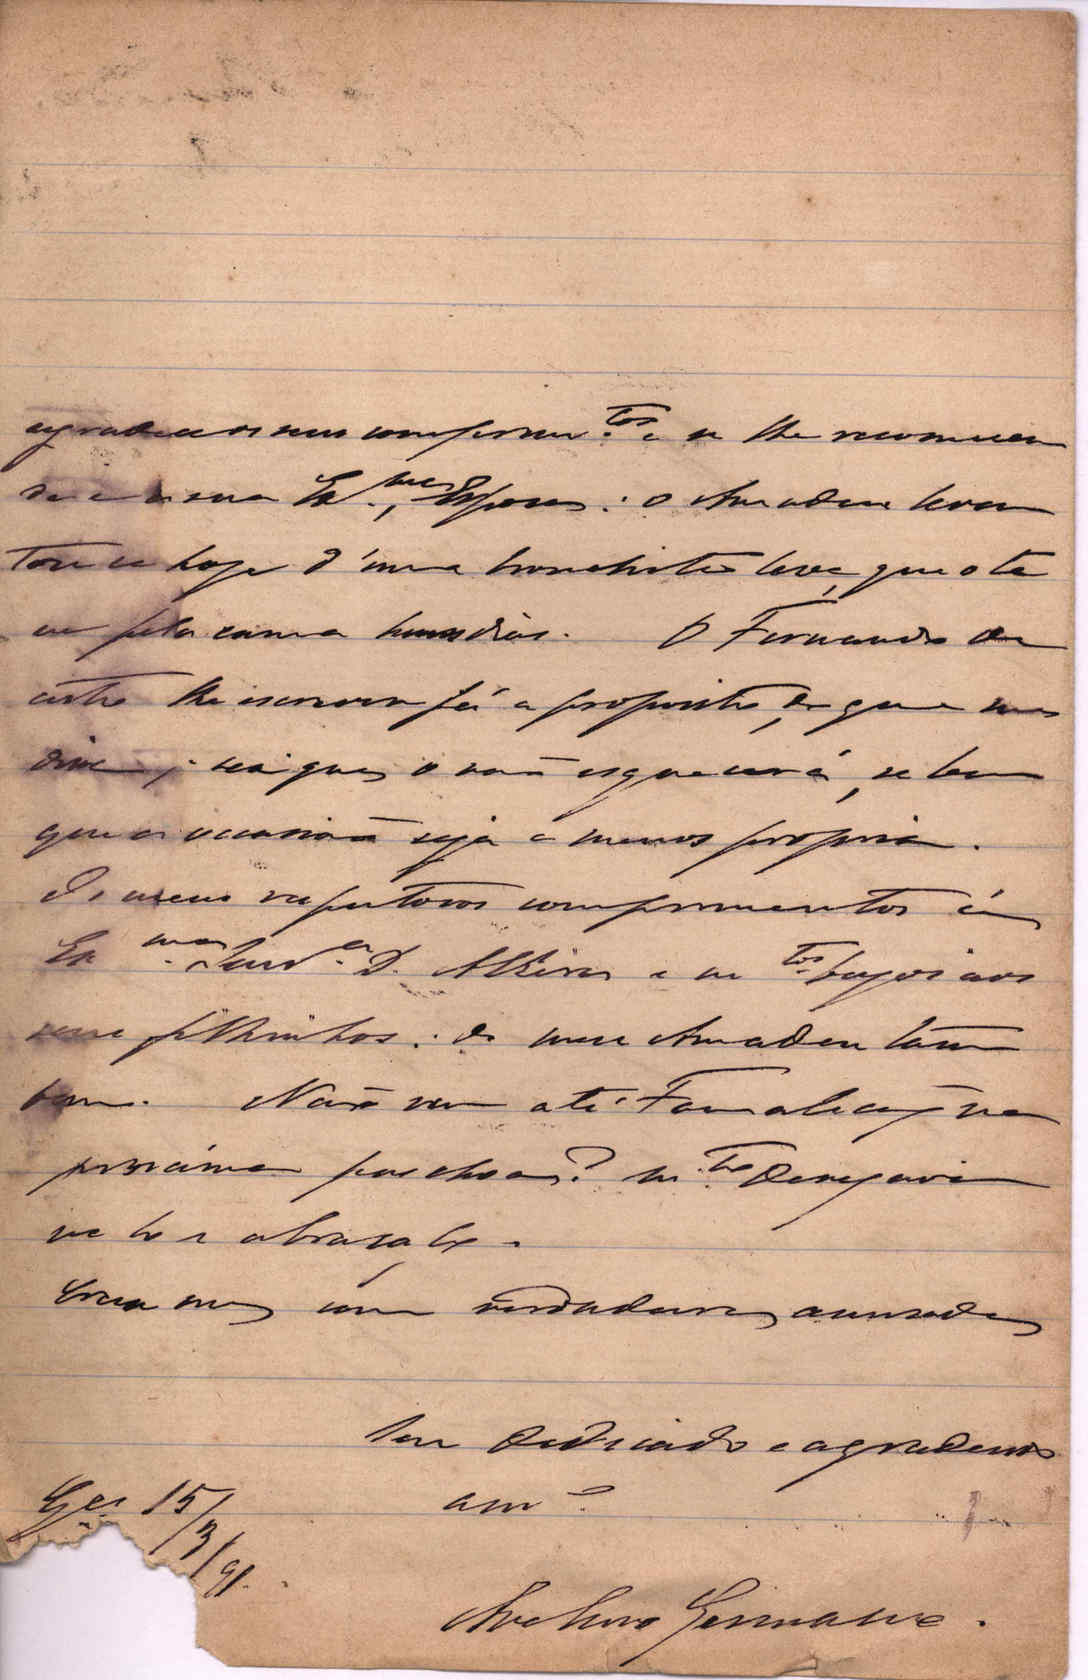 agradece os seus comprim.tos e se lhe recommen
da e a sua Ex.ma Esposa: o Amadeu levan
tou se hoje d'uma bronchite leve, que o te
ve pela cama huns dias. O Fernando de
certo lhe escreveu já a proposito do que me
disse; sei que o não esquecerá, se bem
que a occasião seja a menos propria.
Os meus respeitosos comprimentos á
Ex.ma Snr.a D. Albina e m.tos beijos aos
seus filhinhos: do meu Amadeu tam
bem. Não vem até Famalicão na
proxima paschoa? M.to desejaria
vel-o e abraçal-o.
Creia me com verdadeira amisade
Seu dedicado e agradecido
am.o
15/3/91.
Avelino Germano.